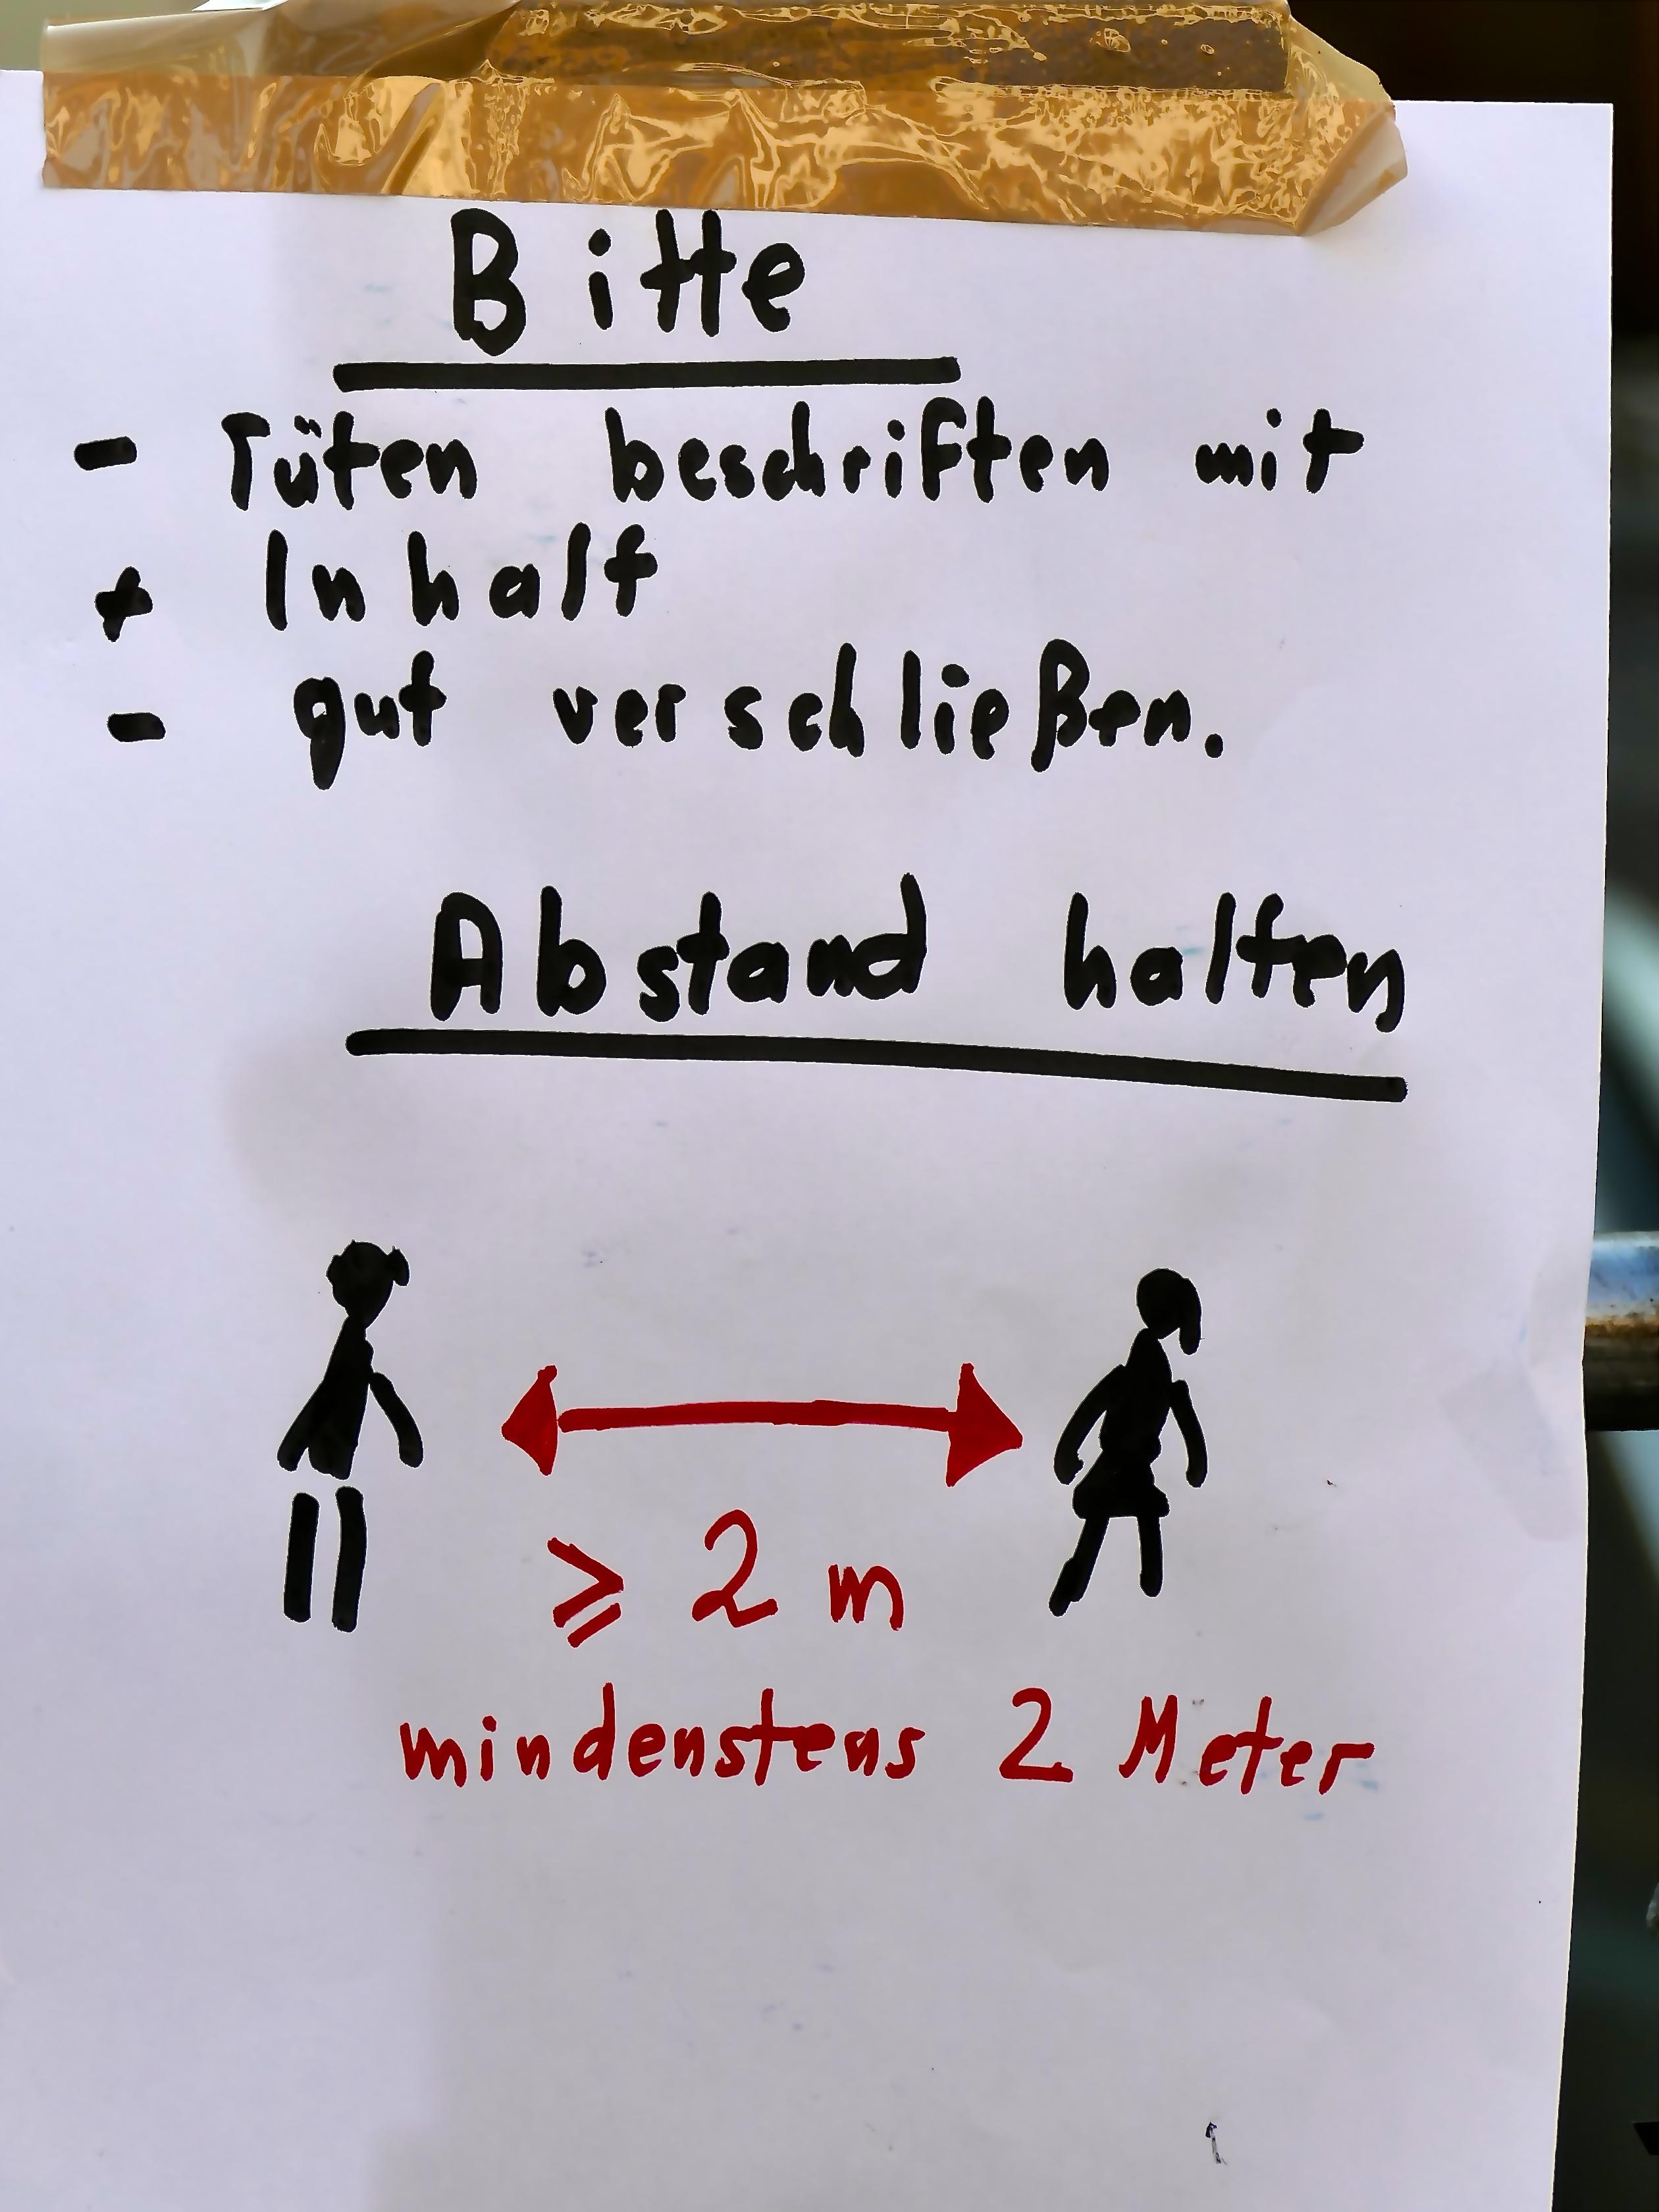 Bitte
- Tüten beschriften mit
+ Inhalt
- gut verschließen.
Abstand halten
≥ 2 m
mindenstens 2 Meter